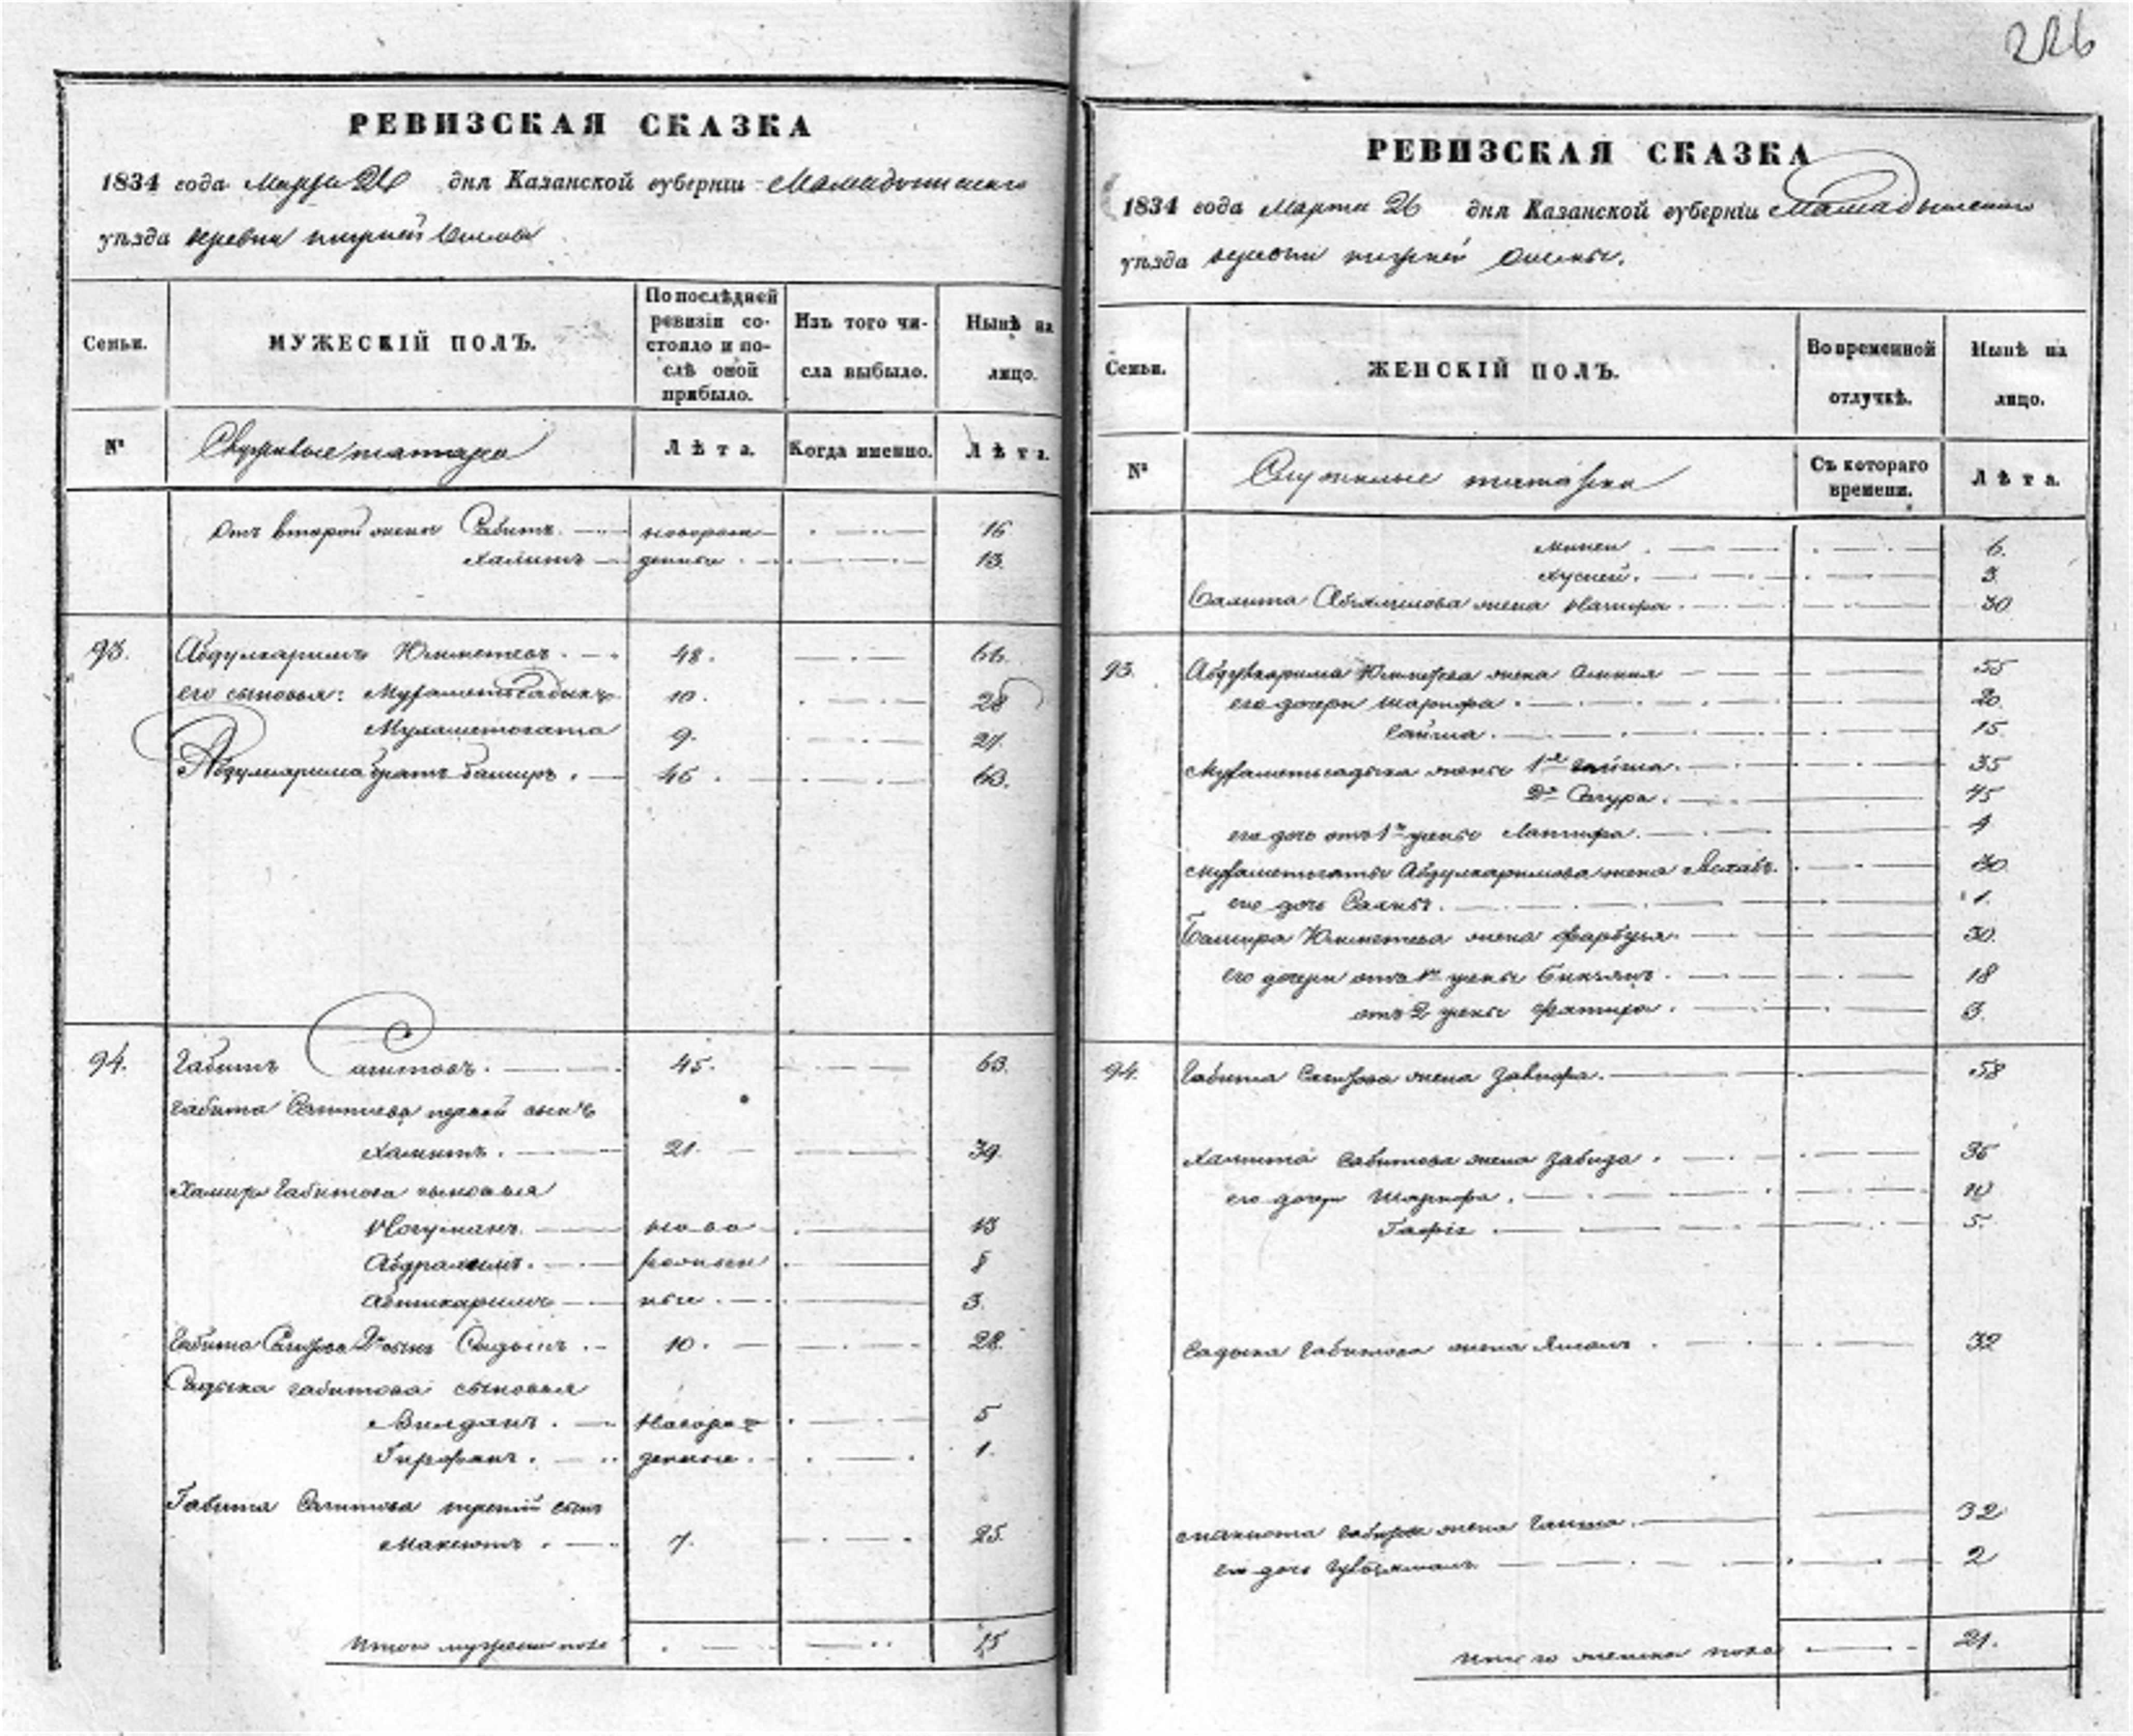 226
РЕВИЗСКАЯ СКАЗКА
1834 года Марта 26 дня Казанской губернiи Мамадышскаго
уѣзда деревни нижней
Семьи.
МУЖЕСКIЙ ПОЛЪ.
По послѣдней ревизiи состояло и послѣ оной прибыло.
Изъ того числа выбыло.
Нынѣ на лицо.
№
Служивые татара
Лѣта.
Когда именно.
Лѣта.
Отъ второй жены Сабитъ новорож 16
Халитъ денные 13.
93. Абдулкаримъ Юмметевъ 48. 66.
его сыновья: Мухаметьсадыкъ 10. 28
Мухаметогата 9. 27.
Абдулкарима братъ Баширъ 45. 63.
94. Габитъ Сагитовъ. 45. 63.
Габита Сагитова первой сынъ
Хамитъ. 21. 39.
Хамита Габитова сыновья
Ногуманъ ново 13
Абдрахимъ. рожден 8
Абдикаримъ ные 3.
Габита Сагитова 2й сынъ Садыкъ 10. 28.
Садыка Габитова сыновья
Вилданъ. Новорож 5
Гирфанъ. денные. 1.
Габита Сагитова третiй сынъ
Максютъ 7. 25.
Итого мужеска пола 15
РЕВИЗСКАЯ СКАЗКА
1834 года Марта 26 дня Казанской губернiи Мамадышскаго
уѣзда деревни нижней
Семьи.
ЖЕНСКIЙ ПОЛЪ.
Во временной отлучкѣ.
Нынѣ на лицо.
№
Служилые татарки
Съ котораго времени.
Лѣта.
6.
Хусней. 3.
жена 30
93. Абдулкарима жена 55
его дочери Шарифа. 20.
15.
Мухаметьсадыка жены 1я 35
2я Сагура. 45
его дочь отъ 1й жены Латифа. 4
Мухаметогаты Абдулкаримова жена 30
его дочь 1.
Башира Юмметева жена 30.
его дочери отъ 1й жены 18
отъ 2 жены 3.
94. Габита Сагитова жена 58
Хамита Габитова жена Забида. 35
его дочери Шарифа. 10
5.
Садыка Габитова жена 32
Максюта Габитова жена 32
его дочь 2
Итого женска пола 21.